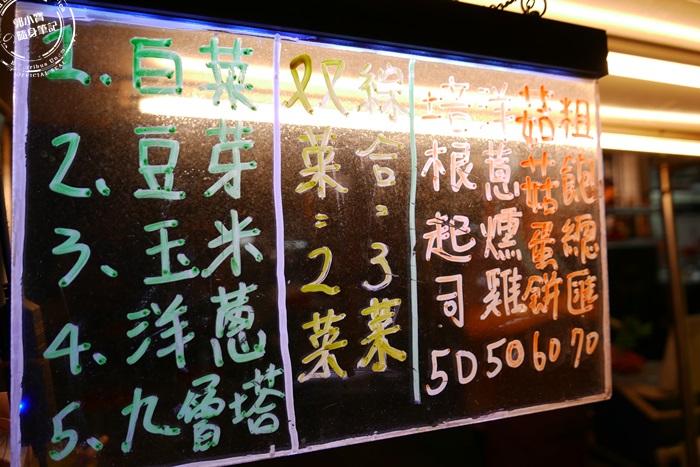 郭小寶
隨身筆記
1、白菜
2、豆芽
3、玉米
4、洋蔥
5、九層塔
双菜=2菜
綜合=3菜
培根起司50
洋蔥燻雞50
菇菇蛋餅60
粗飽總匯70